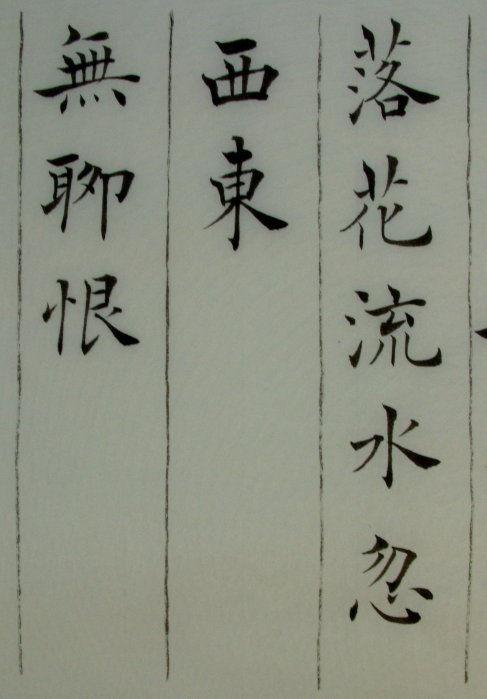 落花流水忽
西東
無聊恨